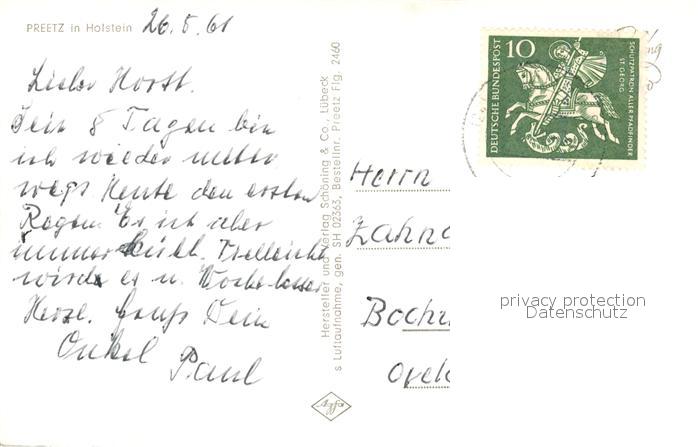 PREETZ in Holstein 26.5.61
Lieber Horst.
Seit 8 Tagen bin
ich wieder unter
wegs Heute den ersten
Regen. Es ist aber
immer kühl. Vielleicht
wird es n. Woche besser
Herzl. Gruß Dein
Onkel
Paul
Hersteller und Verlag Schöning & Co., Lübeck
s Luftaufnahme, gen. SH 02363, Bestellnr. Preetz Flg. 2460
Agfa
10
DEUTSCHE BUNDESPOST
SCHUTZPATRON ALLER PFADFINDER
ST. GEORG
Herrn
Zahna
Bochu
privacy protection
Datenschutz